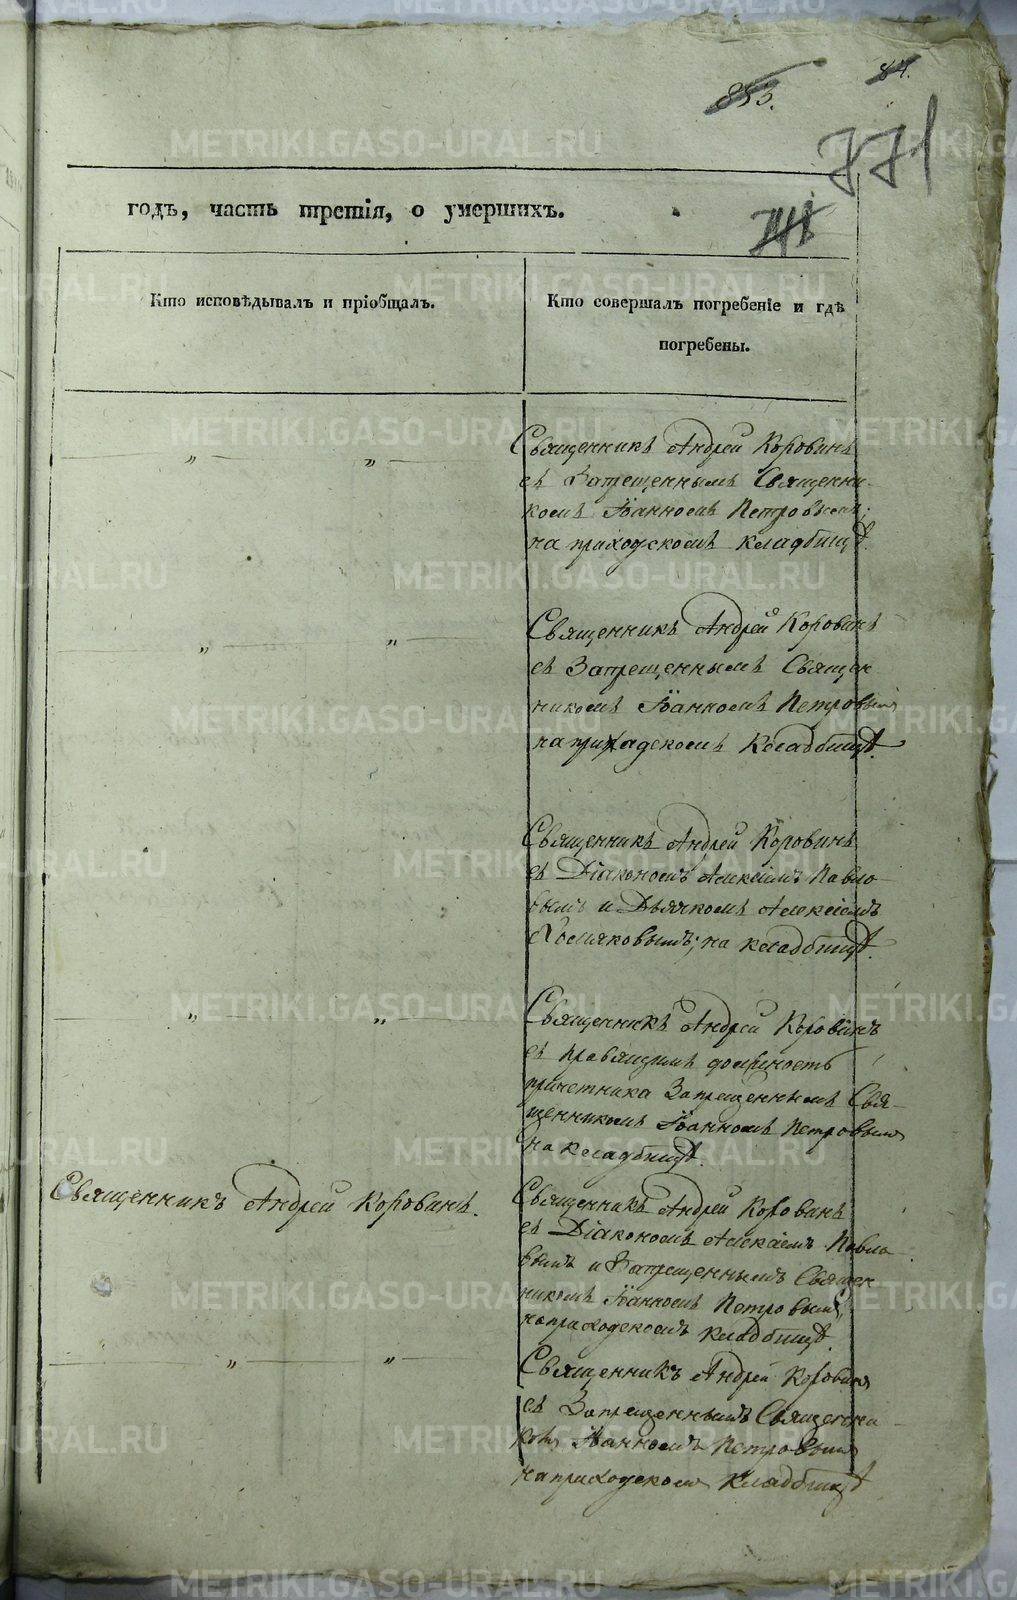 84.
853.
771
годъ, часть третія, о умершихъ.
Кто исповѣдывалъ и пріобщалъ.
Кто совершалъ погребеніе и гдѣ
погребены.
Священникъ Андрей Коровинъ
съ Запрещеннымъ Священни-
комъ Іоанномъ Петровымъ;
на приходскомъ кладбищѣ.
" "
Священникъ Андрей Коровинъ
съ Запрещеннымъ Священ
никомъ Іоанномъ Петровымъ
на приходскомъ кладбищѣ.
" "
Священникъ Андрей Коровинъ
съ Діакономъ Алексіемъ Павло
вымъ и Дьячкомъ Алексіемъ
Хомяковымъ; на кладбищѣ.
Священникъ Андрей Коровинъ
съ правящимъ должность
причетника Запрещеннымъ Свя-
щенникомъ Іоанномъ Петровымъ
на кладбищѣ.
" "
Священникъ Андрей Коровинъ.
Священникъ Андрей Коровинъ
съ Діакономъ Алексіемъ Павло
вымъ и Запрещеннымъ Священ
никомъ Іоанномъ Петровымъ,
на приходскомъ кладбищѣ.
" "
Священникъ Андрей Коровинъ
съ Запрещеннымъ Священни-
комъ Іоанномъ Петровымъ
на приходскомъ кладбищѣ
METRIKI.GASO-URAL.RU